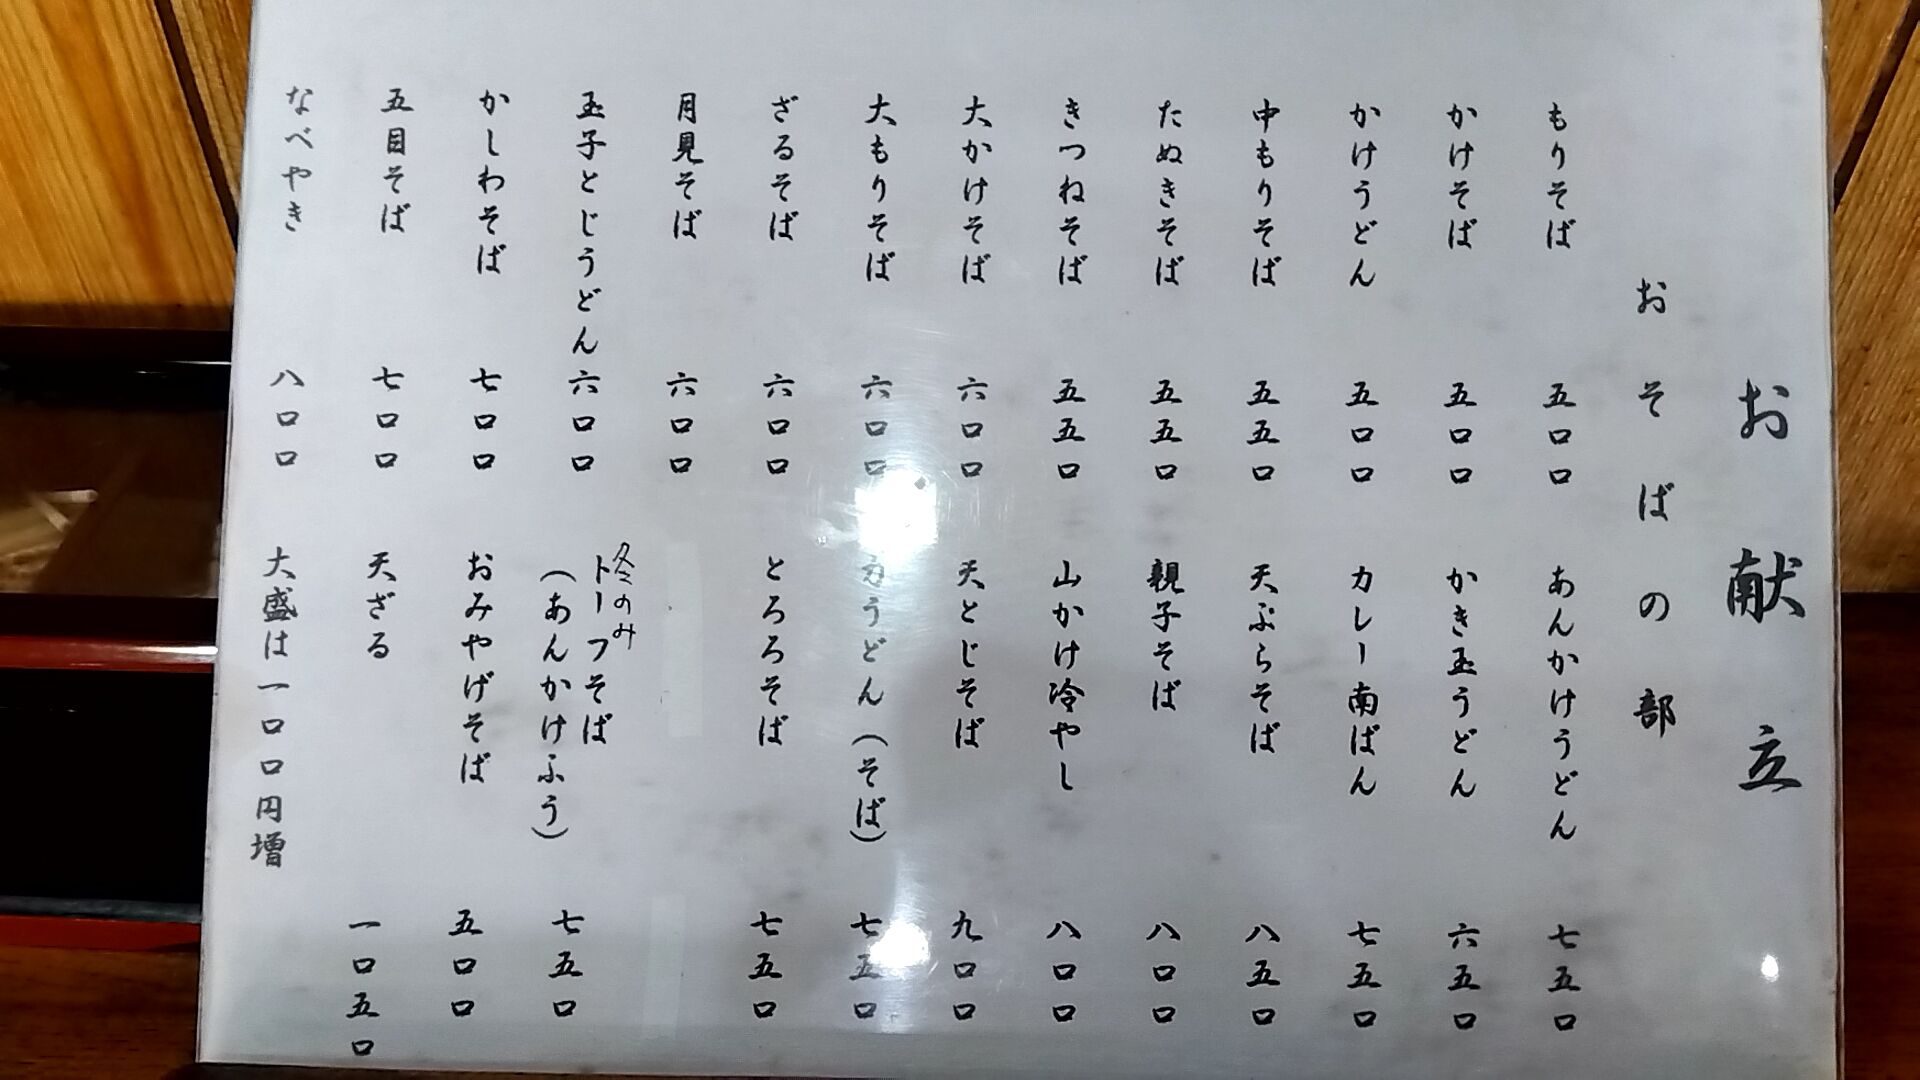 お献立
おそばの部
もりそば 五〇〇
かけそば 五〇〇
かけうどん 五〇〇
中もりそば 五五〇
たぬきそば 五五〇
きつねそば 五五〇
大かけそば 六〇〇
大もりそば 六〇〇
ざるそば 六〇〇
月見そば 六〇〇
玉子とじうどん 六〇〇
かしわそば 七〇〇
五目そば 七〇〇
なべやき 八〇〇
あんかけうどん 七五〇
かき玉うどん 六五〇
カレー南ばん 七五〇
天ぷらそば 八五〇
親子そば 八〇〇
山かけ冷やし 八〇〇
天とじそば 九〇〇
力うどん(そば) 七五〇
とろろそば 七五〇
冬のみ
トーフそば
(あんかけふう) 七五〇
おみやげそば 五〇〇
天ざる 一〇五〇
大盛は一〇〇円増